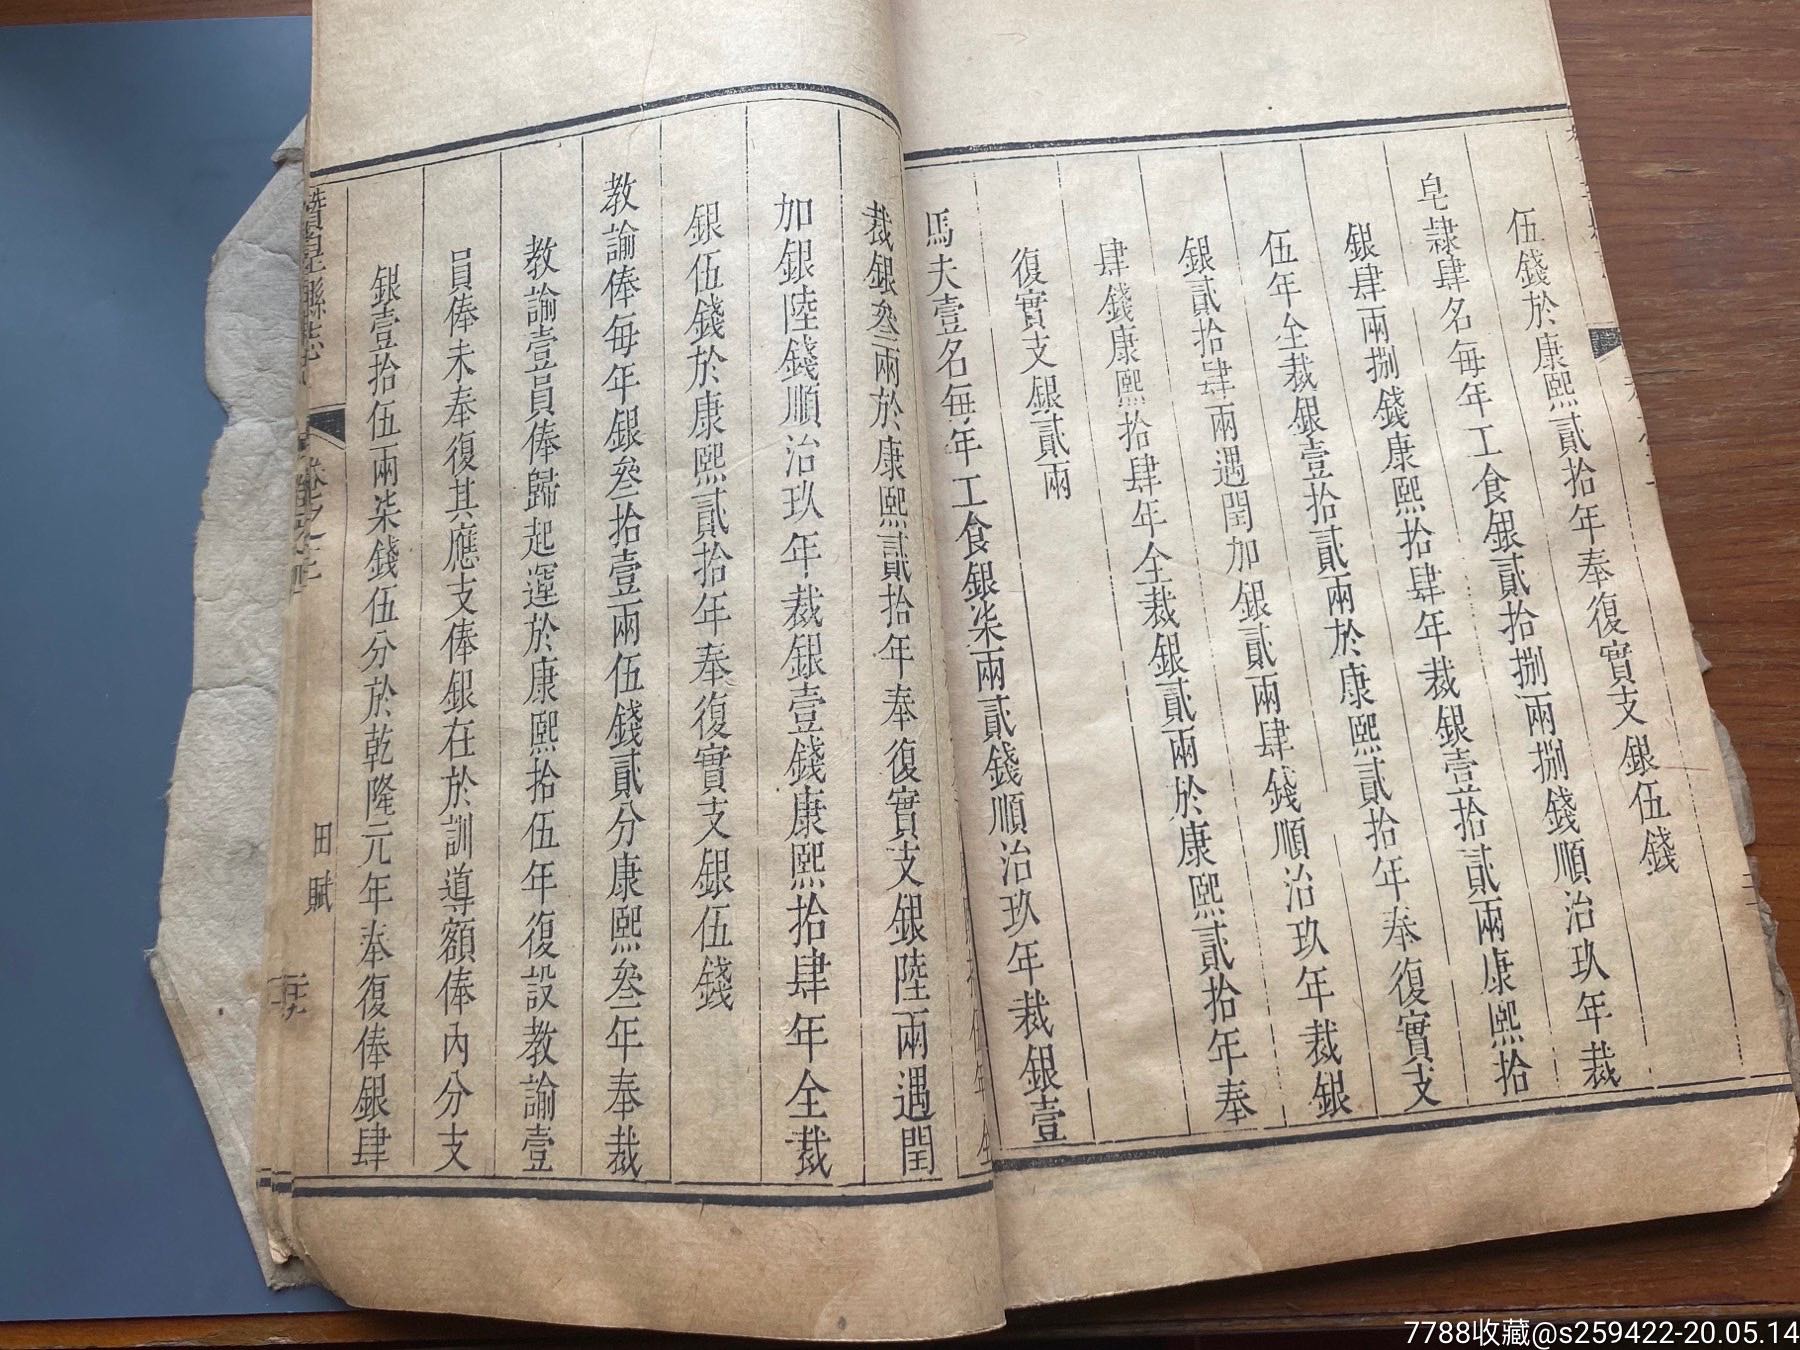 伍錢於康熙貳拾年奉復實支銀伍錢
皂隷肆名每年工食銀貳拾捌兩捌錢順治玖年裁
銀肆兩捌錢康熙拾肆年裁銀壹拾貳兩康熙拾
伍年全裁銀壹拾貳兩於康熙貳拾年奉復實支
銀貳拾肆兩遇閏加銀貳兩肆錢順治玖年裁銀
肆錢康熙拾肆年全裁銀貳兩於康熙貳拾年奉
復實支銀貳兩
馬夫壹名每年工食銀柒兩貳錢順治玖年裁銀壹
裁銀叄兩於康熙貳拾年奉復實支銀陸兩遇閏
加銀陸錢順治玖年裁銀壹錢康熙拾肆年全裁
銀伍錢於康熙貳拾年奉復實支銀伍錢
教諭俸每年銀叄拾壹兩伍錢貳分康熙叄年奉裁
教諭壹員俸歸起運於康熙拾伍年復設教諭壹
員俸未奉復其應支俸銀在於訓導額俸內分支
銀壹拾伍兩柒錢伍分於乾隆元年奉復俸銀肆
贊皇縣志
卷之三
田賦
7788收藏@s259422-20.05.14